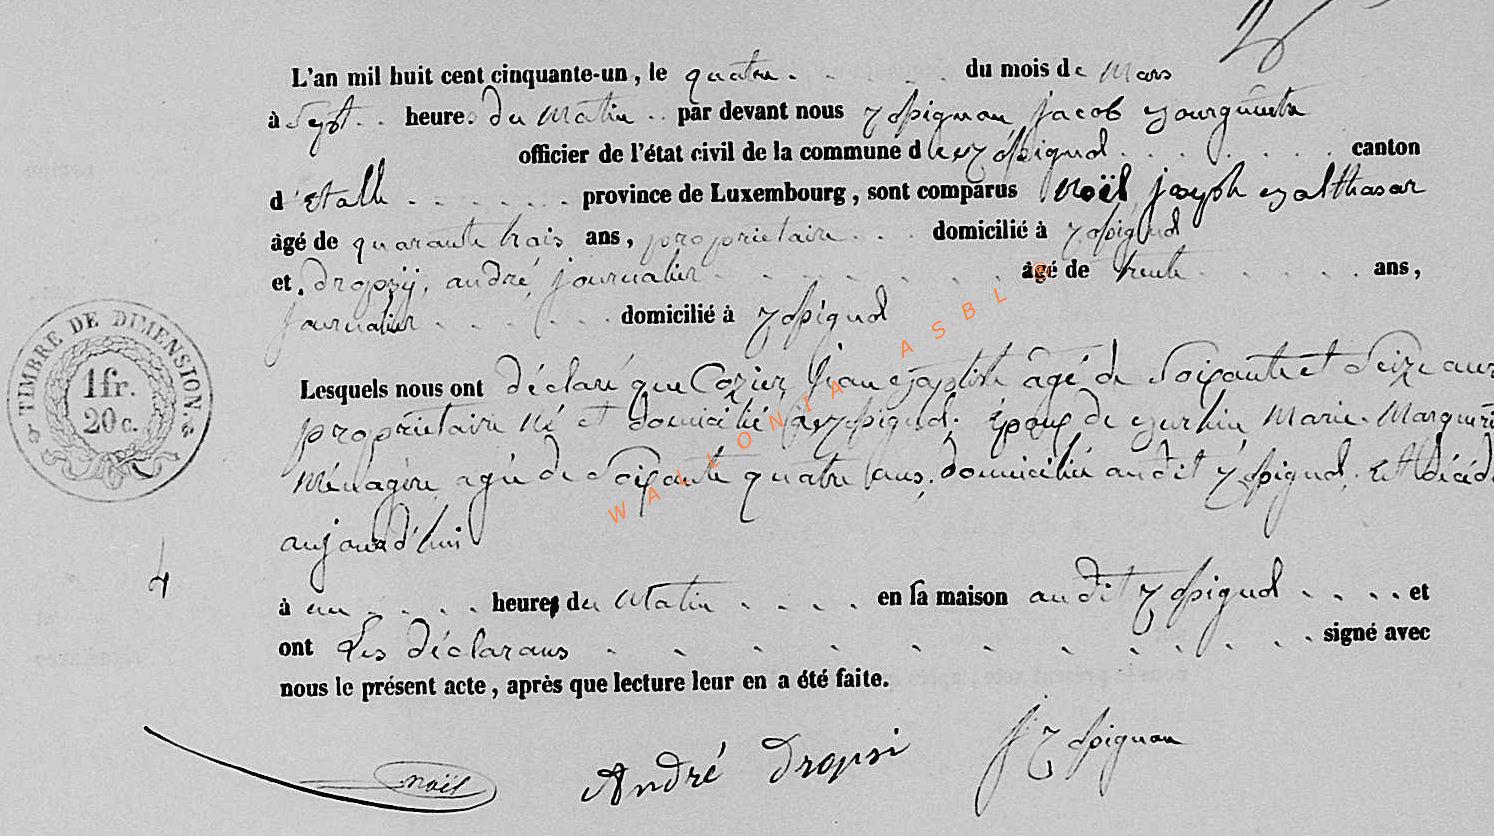 L'an mil huit cent cinquante-un, le quatre du mois de Mars
à Sept heure. du Matin par devant nous jacob
officier de l'état civil de la commune d canton
d'Etalle province de Luxembourg, sont comparus Noël joseph Balthasar
âgé de quarante trois ans, propriétaire domicilié à
et, andré, journalier âgé de trente ans,
journalier domicilié à
Lesquels nous ont déclaré que Cozier, jean Baptiste âgé de Soixante et Seize ans
propriétaire né et domicilié à Epoux de Marie Marguerit
Ménagère agée de Soixante quatre ans, domiciliée audit Est décéd
aujourd'hui
à un heures du Matin en sa maison audit et
ont Les déclarans signé avec
nous le présent acte, après que lecture leur en a été faite.
noël André Dropsi
TIMBRE DE DIMENSION.
1 fr.
20 c.
4
WALLONIA ASBL ©